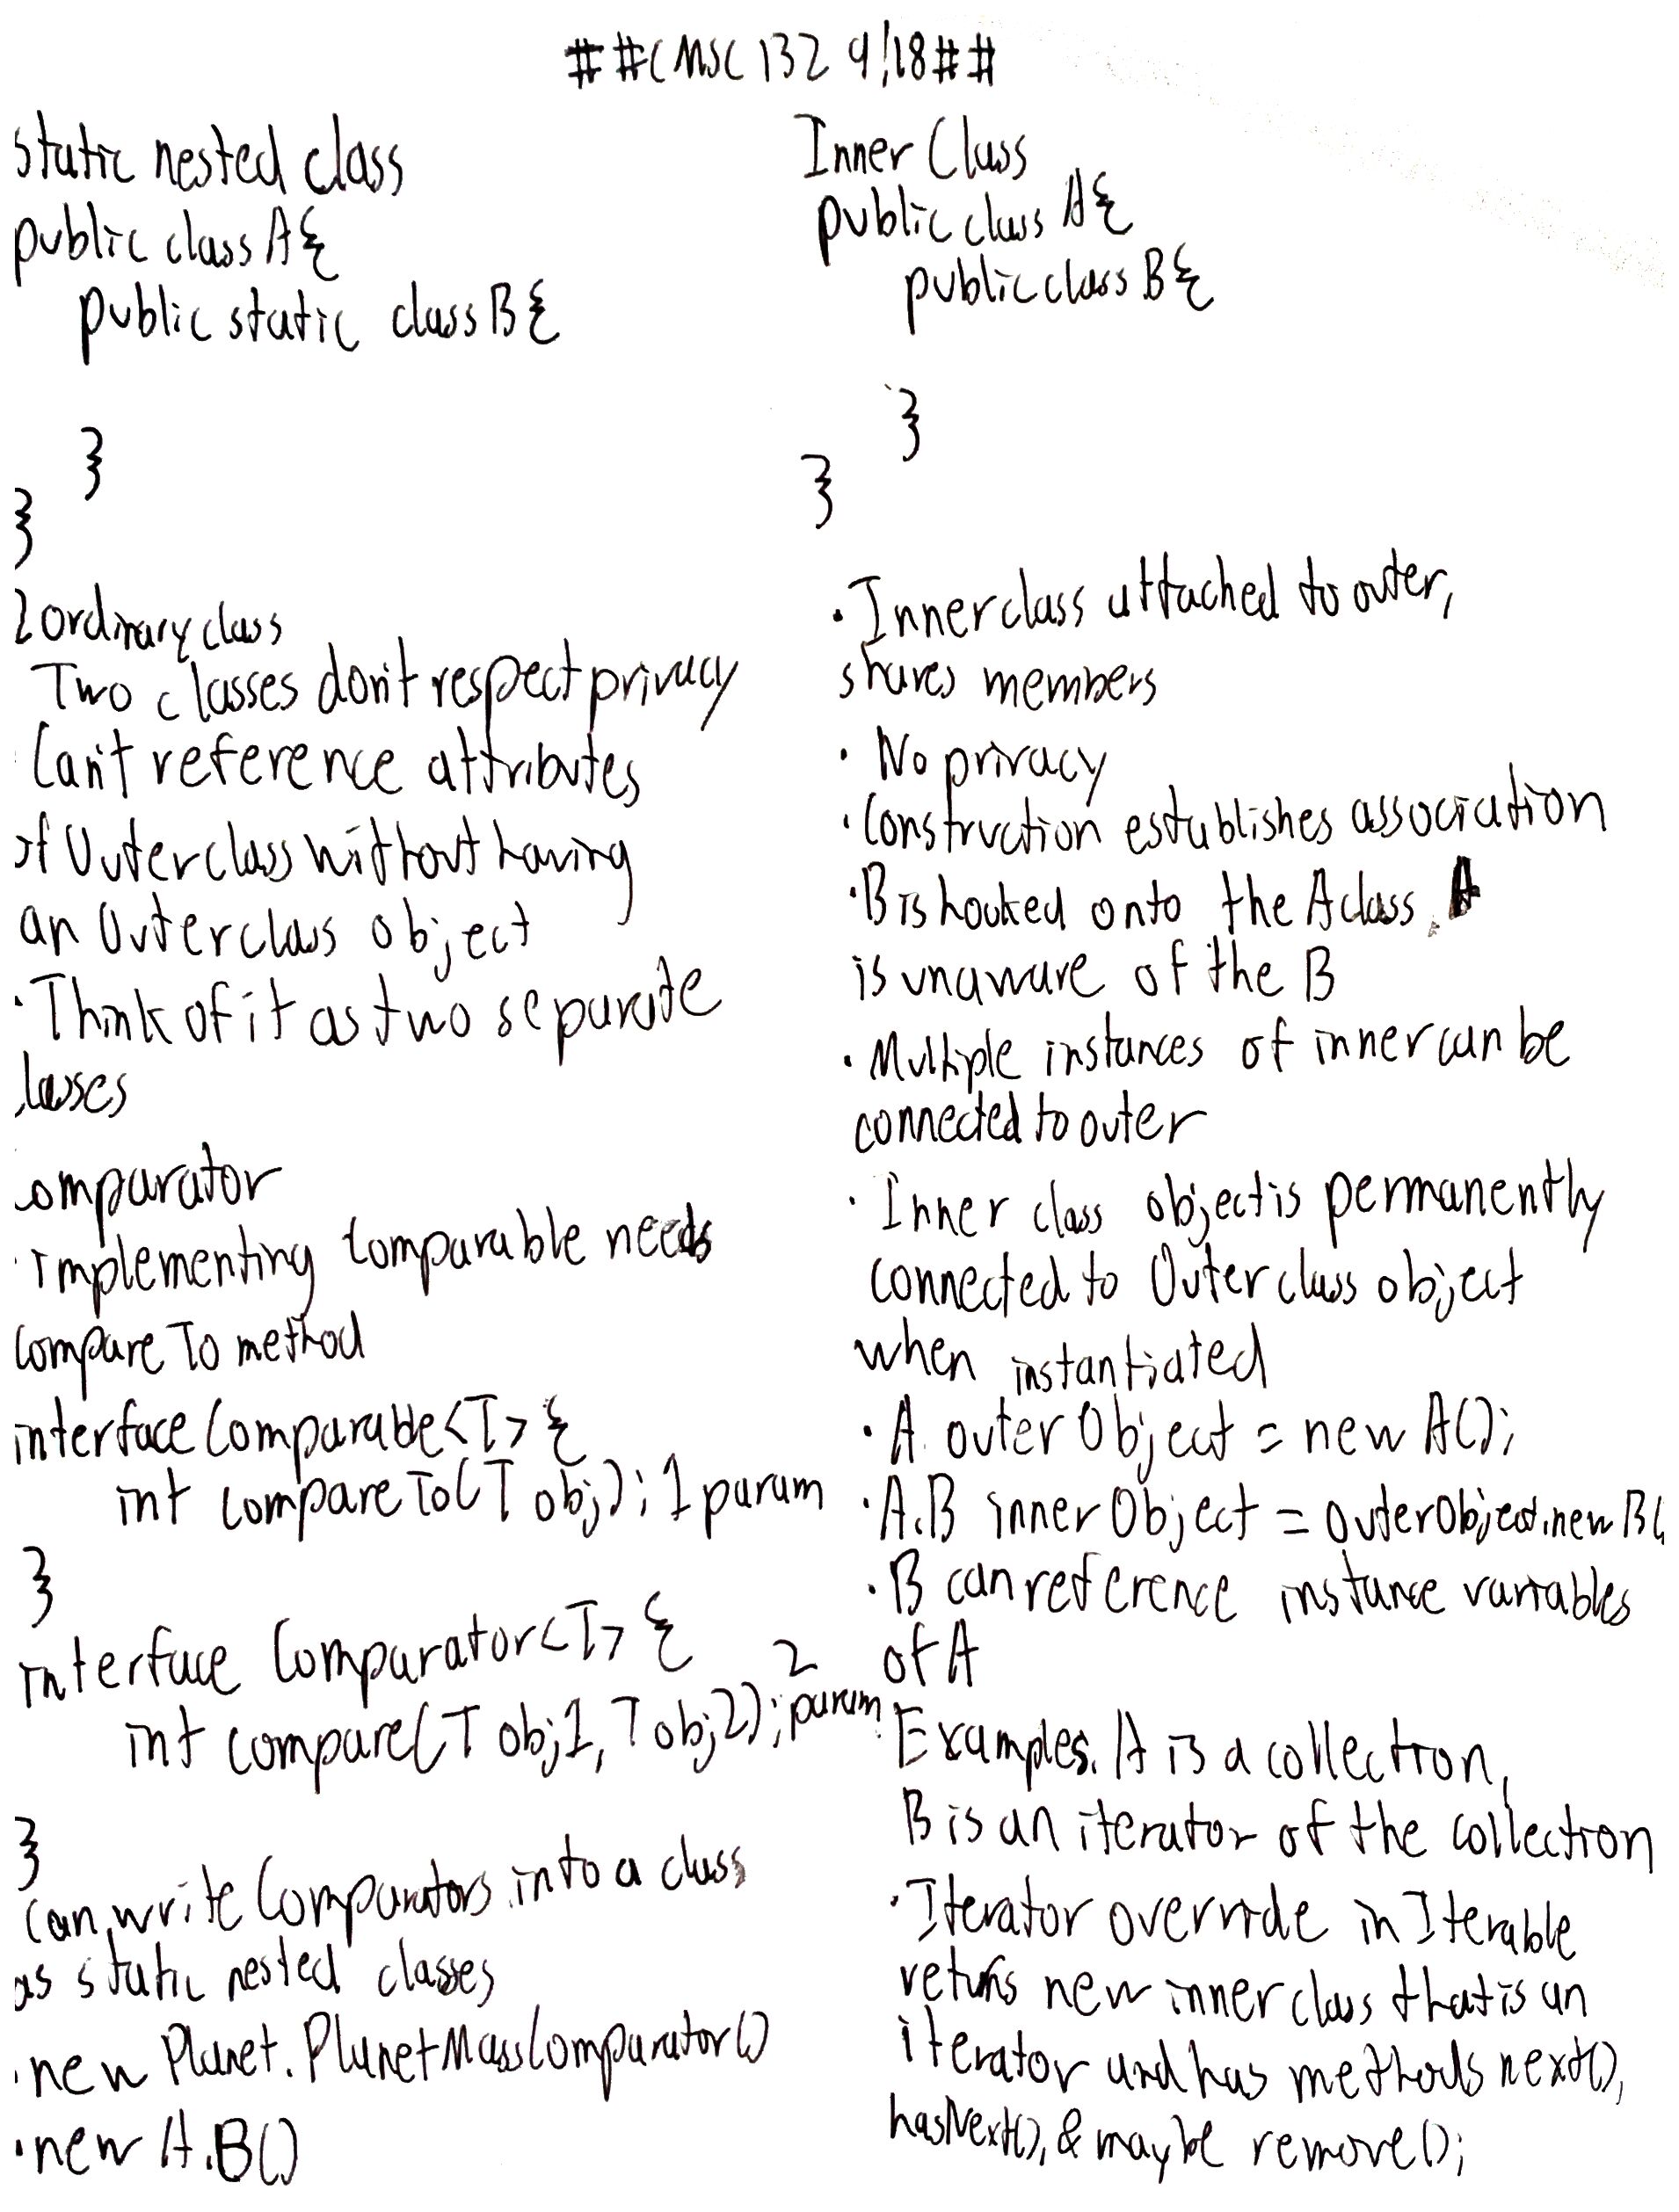 ##CMSC 132 9/18##
static nested class
public class A{
public static class B{
}
}
2 ordinary class
Two classes don't respect privacy
Can't reference attributes
of Outerclass without having
an Outerclass object
· Think of it as two separate
classes
omparator
· Implementing Comparable needs
compareTo method
interface Comparable<T> {
int compareTo(T obj); 1 param
}
interface Comparator<T> {
int compare(T obj1, T obj2); 2 param
}
Can write Comparators into a class
as static nested classes
· new Planet.PlanetMassComparator()
· new A.B()
Inner Class
public class A{
public class B{
}
}
· Inner class attached to outer,
shares members
· No privacy
· Construction establishes association
· B is hooked onto the A class. A
is unaware of the B
· Multiple instances of inner can be
connected to outer
· Inner class object is permanently
connected to Outer class object
when instantiated
· A outerObject = new A();
· A.B innerObject = outerObject.new B(
· B can reference instance variables
of A
Examples. A is a collection,
B is an iterator of the collection
· Iterator override in Iterable
returns new inner class that is an
iterator and has methods next(),
hasNext(), & maybe remove();